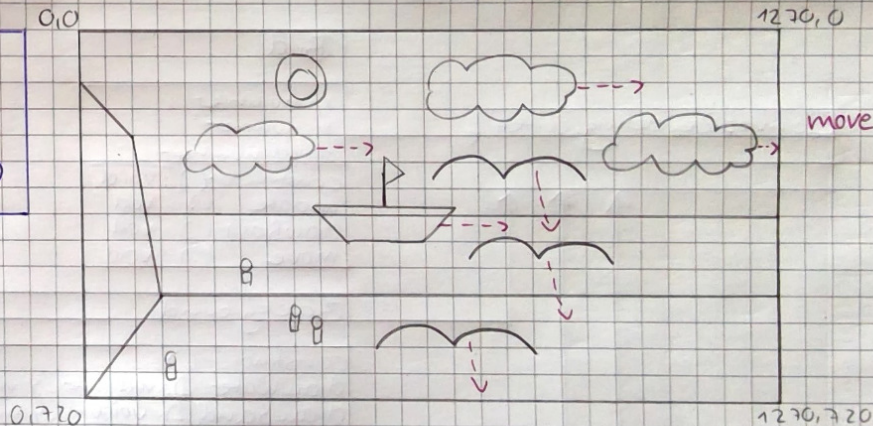 0,0
1270,0
move
0,720
1270,720